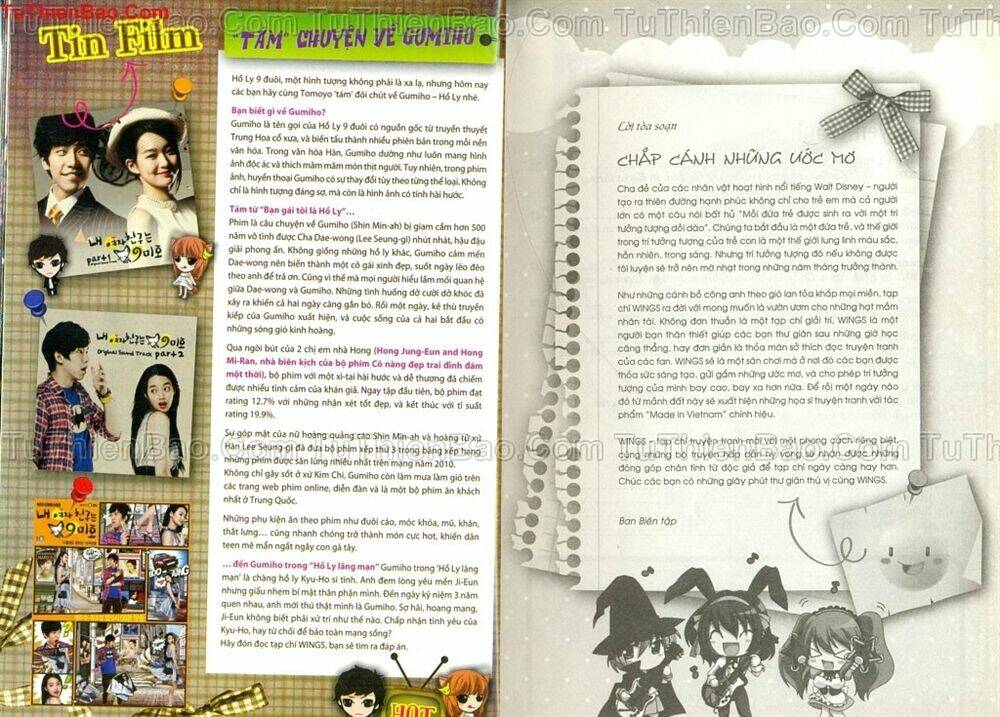 TuThienBao.Com TuThienBao.Com TuThienBao.Com TuThienBao.Com TuThienBao.Com
Tin Film
"TÁM" CHUYỆN VỀ GUMIHO
Hồ Ly 9 đuôi, một hình tượng không phải là xa lạ, nhưng hôm nay
các bạn hãy cùng Tomoyo 'tám' đôi chút về Gumiho – Hồ Ly nhé.
Bạn biết gì về Gumiho?
Gumiho là tên gọi của Hồ Ly 9 đuôi có nguồn gốc từ truyền thuyết
Trung Hoa cổ xưa, và biến tấu thành nhiều phiên bản trong mỗi nền
văn hóa. Trong văn hóa Hàn, Gumiho dường như luôn mang hình
ảnh độc ác và thích măm măm món thịt người. Tuy nhiên, trong phim
ảnh, huyền thoại Gumiho có sự thay đổi tùy theo từng thể loại. Không
chỉ là hình tượng đáng sợ, mà còn là hình ảnh có tính hài hước.
Tám từ "Bạn gái tôi là Hồ Ly"...
Phim là câu chuyện về Gumiho (Shin Min-ah) bị giam cầm hơn 500
năm vô tình được Cha Dae-wong (Lee Seung-gi) nhút nhát, hậu đậu
giải phong ấn. Không giống những hồ ly khác, Gumiho cảm mến
Dae-wong nên biến thành một cô gái xinh đẹp, suốt ngày lẽo đẽo
theo anh để trả ơn. Cũng vì thế mà mọi người hiểu lầm mối quan hệ
giữa Dae-wong và Gumiho. Những tình huống dở cười dở khóc đã
xảy ra khiến cả hai ngày càng gắn bó. Rồi một ngày, kẻ thù truyền
kiếp của Gumiho xuất hiện, và cuộc sống của cả hai bắt đầu có
những sóng gió kinh hoàng.
Qua ngòi bút của 2 chị em nhà Hong (Hong Jung-Eun and Hong
Mi-Ran, nhà biên kịch của bộ phim Cô nàng đẹp trai đình đám
một thời), bộ phim với một xì-tai hài hước và dễ thương đã chiếm
được nhiều tình cảm của khán giả. Ngay tập đầu tiên, bộ phim đạt
rating 12.7% với những nhận xét tốt đẹp, và kết thúc với tỉ suất
rating 19.9%.
Sự góp mặt của nữ hoàng quảng cáo Shin Min-ah và hoàng tử xứ
Hàn Lee Seung-gi đã đưa bộ phim xếp thứ 3 trong bảng xếp hạng
những phim được săn lùng nhiều nhất trên mạng năm 2010.
Không chỉ gây sốt ở xứ Kim Chi, Gumiho còn làm mưa làm gió trên
các trang web phim online, diễn đàn và là một bộ phim ăn khách
nhất ở Trung Quốc.
Những phụ kiện ăn theo phim như đuôi cáo, móc khóa, mũ, khăn,
thắt lưng... cũng nhanh chóng trở thành món cực hot, khiến dân
teen mê mẩn ngất ngây con gà tây.
... đến Gumiho trong "Hồ Ly lãng mạn" Gumiho trong 'Hồ Ly lãng
mạn' là chàng hồ ly Kyu-Ho si tình. Anh đem lòng yêu mến Ji-Eun
nhưng giấu nhẹm bí mật thân phận mình. Đến ngày kỷ niệm 3 năm
quen nhau, anh mới thú thật mình là Gumiho. Sợ hãi, hoang mang,
Ji-Eun không biết phải xử trí như thế nào. Chấp nhận tình yêu của
Kyu-Ho, hay từ chối để bảo toàn mạng sống?
Hãy đón đọc tạp chí WINGS, bạn sẽ tìm ra đáp án.
내 여자친구는
part1 9미호
내 여자친구는 9미호
Original Sound Track part2
내 여자친구는
9미호
HOT
Lời tòa soạn
CHẮP CÁNH NHỮNG ƯỚC MƠ
Cha đẻ của các nhân vật hoạt hình nổi tiếng Walt Disney – người
tạo ra thiên đường hạnh phúc không chỉ cho trẻ em mà cả người
lớn có một câu nói bất hủ "Mỗi đứa trẻ được sinh ra với một trí
tưởng tượng dồi dào". Chúng ta bắt đầu là một đứa trẻ, và thế giới
trong trí tưởng tượng của trẻ con là một thế giới lung linh màu sắc,
hồn nhiên, trong sáng. Nhưng trí tưởng tượng đó nếu không được
tôi luyện sẽ trở nên mờ nhạt trong những năm tháng trưởng thành.
Như những cánh bồ công anh theo gió lan tỏa khắp mọi miền, tạp
chí WINGS ra đời với mong muốn là vườn ươm cho những hạt mầm
nhân tài. Không đơn thuần là một tạp chí giải trí, WINGS là một
người bạn thân thiết giúp các bạn thư giãn sau những giờ học
căng thẳng, hay đơn giản là thỏa mãn sở thích đọc truyện tranh
của các fan. WINGS sẽ là một sân chơi mà ở nơi đó các bạn được
thỏa sức sáng tạo, gửi gắm những ước mơ, và cho phép trí tưởng
tượng của mình bay cao, bay xa hơn nữa. Để rồi một ngày nào
đó từ mảnh đất này sẽ xuất hiện những họa sĩ truyện tranh với tác
phẩm "Made in Vietnam" chính hiệu.
WINGS - tạp chí truyện tranh mới với một phong cách riêng biệt,
cùng những bộ truyện hấp dẫn hy vọng sẽ nhận được những
đóng góp chân tình từ độc giả để tạp chí ngày càng hay hơn.
Chúc các bạn có những giây phút thư giãn thú vị cùng WINGS.
Ban Biên tập
TuThienBao.Com TuThienBao.Com TuThienBao.Com TuThienBao.Com